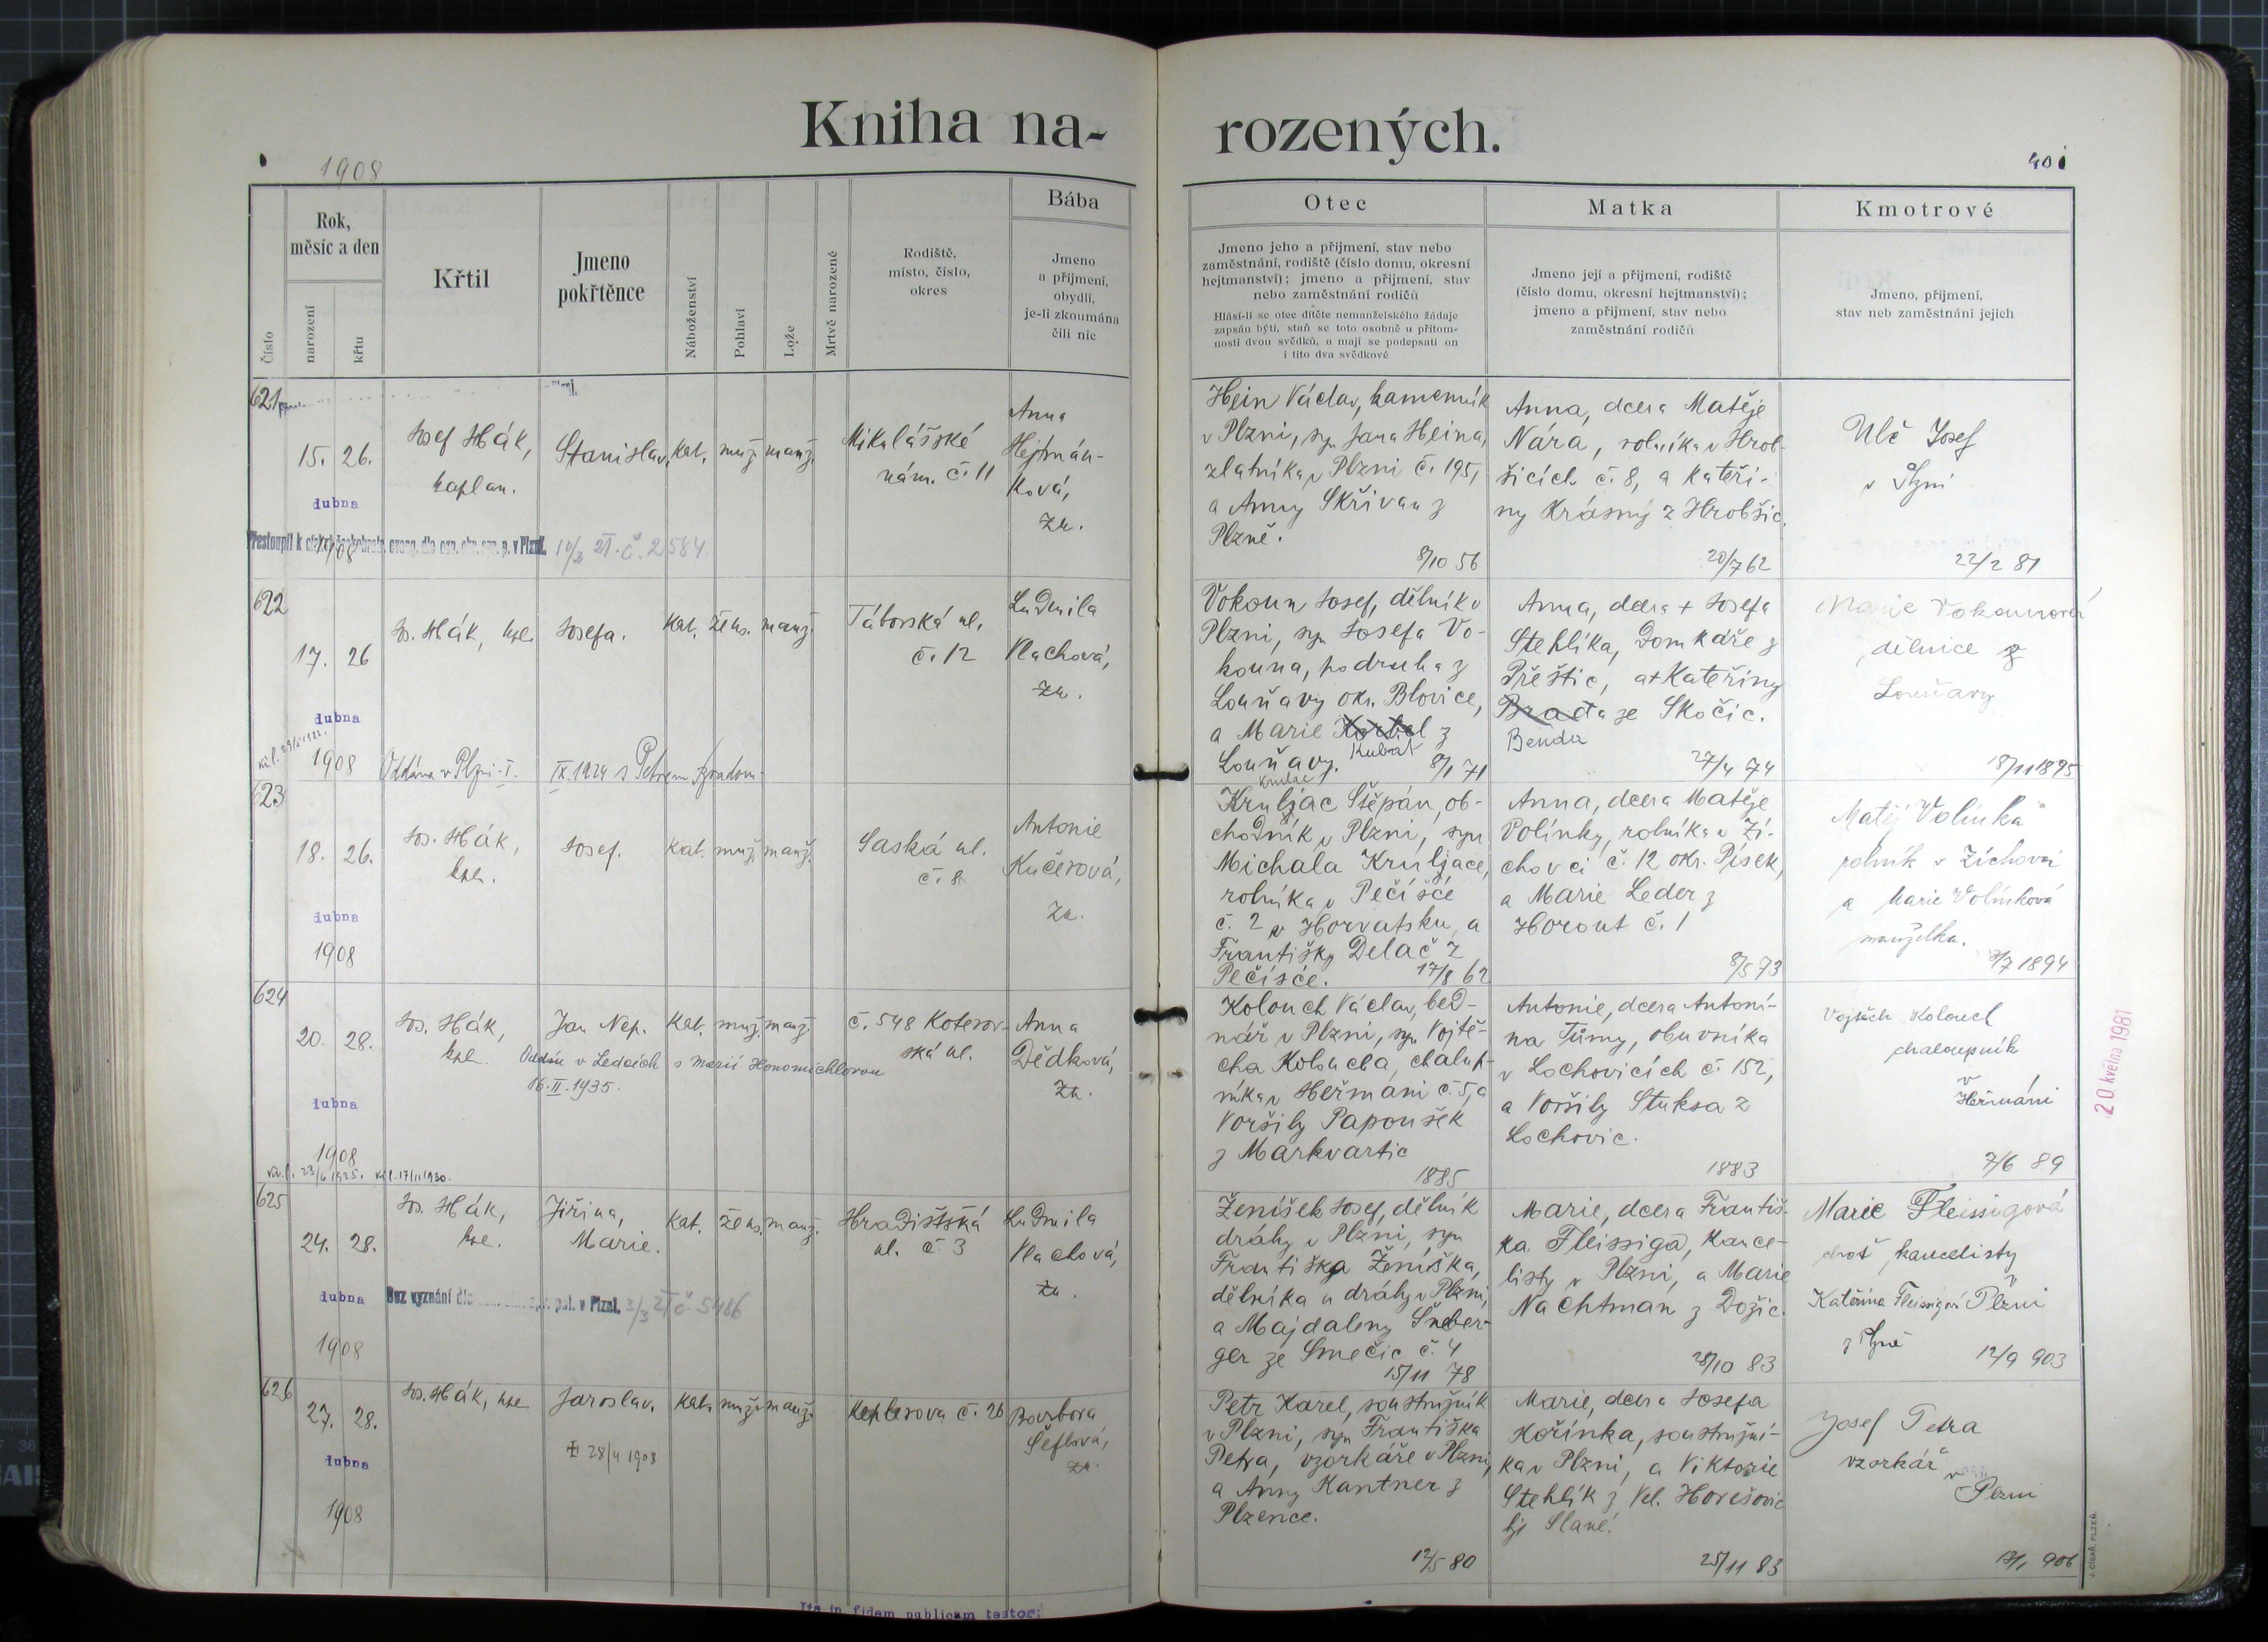 Kniha na-
rozených.
1908
401
Číslo
Rok,
měsíc a den
narození
křtu
Křtil
Jmeno
pokřtěnce
Náboženství
Pohlaví
Lože
Mrtvě narozené
Rodiště,
místo, číslo,
okres
Bába
Jmeno
a příjmení,
obydlí,
je-li zkoumána
čili nic
Otec
Jmeno jeho a příjmení, stav nebo
zaměstnání, rodiště (číslo domu, okresní
hejtmanství); jmeno a příjmení, stav
nebo zaměstnání rodičů
Hlásí-li se otec dítěte nemanželského žádaje
zapsán býti, staň se toto osobně u přítom-
nosti dvou svědků, a mají se podepsati on
i tito dva svědkové
Matka
Jmeno její a příjmení, rodiště
(číslo domu, okresní hejtmanství);
jmeno a příjmení, stav nebo
zaměstnání rodičů
Kmotrové
Jmeno, příjmení,
stav neb zaměstnání jejich
621
15. 26.
dubna
1908
Josef Hák,
kaplan.
Stanislav.
kat.
muž.
manž.
Mikulášské
nám. č. 11
Anna
Hejtmán-
ková,
zk.
Přestoupil k církvi českobratr. evang. v Plzni. 10/2 21 č. 2584.
Hein Václav, kameník
v Plzni, syn Jana Heina,
zlatníka v Plzni č. 195,
a Anny Skřivan z
Plzně.
8/10 56
Anna, dcera Matěje
Nára, rolníka v Hrob-
šicích č. 8, a Kateři-
ny Krásný z Hrobšic.
20/7 62
Ulč Josef
v Plzni
22/2 81
622
17. 26
dubna
1908
Jos. Hák, kpl.
Josefa.
kat.
žens.
manž.
Táborská ul.
č. 12
Ludmila
Vlachová,
zk.
Oddána v Plzni-I. IX. 1924 s Petrem
Vokoun Josef, dělník v
Plzni, syn Josefa Vo-
kouna, podruha z
Louňavy okr. Blovice,
a Marie z
Kubat
Louňavy.
8/1 71
Anna, dcera + Josefa
Stehlíka, domkáře z
Přeštic, a + Kateřiny
Brada ze Skočic.
Benda
27/4 74
Marie Vokounová
dělnice z
Louňavy
18/11 1895
623
18. 26.
dubna
1908
Jos. Hák,
kpl.
Josef.
kat.
muž.
manž.
Saská ul.
č. 8
Antonie
Kučerová,
zk.
Kruljac Štěpán, ob-
chodník v Plzni, syn
Michala Kruljace,
rolníka v Pečíšče
č. 2 v Horvatsku, a
Františky Delač z
Pečíšče.
17/8 62
Anna, dcera Matěje
Volínky, rolníka v Zí-
chovci č. 12 okr. Písek,
a Marie Leder z
Horout č. 1
8/5 73
Matěj Volinka
rolník v Zíchovci
a Marie Volínková
manželka.
3/7 1894
624
20. 28.
dubna
1908
Jos. Hák,
kpl.
Jan Nep.
kat.
muž.
manž.
č. 548 Koterov-
ská ul.
Anna
Dědková,
zk.
Oddán v Ledcích s Marií Honomichlovou
16. II. 1935.
Kolouch Václav, bed-
nář v Plzni, syn Vojtě-
cha Koloucha, chalup-
níka v Heřmani č. 5, a
Voršily Papoušek
z Markvartic
1885
Antonie, dcera Antoní-
na Tůmy, obuvníka
v Lochovicích č. 152,
a Voršily Stuksa z
Lochovic.
1883
Vojtěch Kolouch
chaloupník
v
Heřmáni
7/6 89
20. května 1981
625
24. 28.
dubna
1908
Jos. Hák,
kpl.
Jiřina,
Marie.
kat.
žens.
manž.
Hradištská
ul. č. 3
Ludmila
Vlachová,
zk.
Bez vyznání v Plzni. 3/3 21 č 5486
Ženíšek Josef, dělník
dráhy v Plzni, syn
Františka Ženíška,
dělníka u dráhy v Plzni,
a Majdaleny Šneber-
ger ze Smečic č. 4
15/11 78
Marie, dcera Františ-
ka Fleissiga, kance-
listy v Plzni, a Marie
Nachtman z Dožic.
28/10 83
Marie Fleissigová
choť kancelisty
Kateřina Fleissigová Plzni
z Plzně
12/9 903
626
27. 28.
dubna
1908
Jos. Hák, kpl.
Jaroslav.
kat.
muž.
manž.
Keplerova č. 26
Barbora
Šeflová,
zk.
28/4 1908
Petr Karel, soustružník
v Plzni, syn Františka
Petra, vzorkáře v Plzni,
a Anny Kantner z
Plzence.
12/5 80
Marie, dcera Josefa
Kořínka, soustruží-
ka v Plzni, a Viktorie
Stehlík z Vel. Horešovic
bjž Slané.
25/11 83
Josef Petra
vzorkář
v
Plzni
13/1 906
Ita in fidem publicam testor:
J. CÍSAŘ, PLZEŇ.